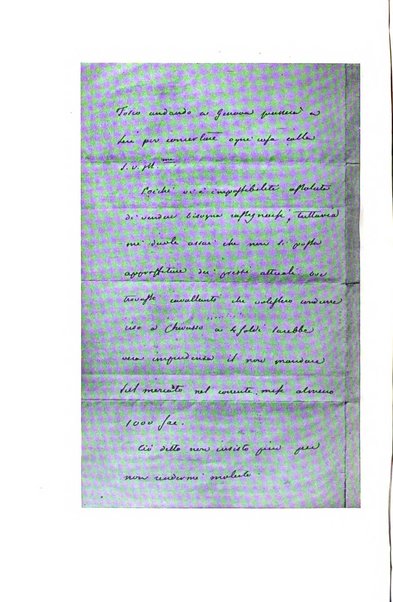 Tosco andando a Genova passerà a
Leri per concertare ogni cosa colla
S. V. Ill
Poiché vi è impossibilità assoluta
di vendere bisogna rassegnarsi, tuttavia
mi duole assai che non si possa
approfittare dei prezzi attuali. Ove
trovaste cavallanti che volessero condurre
riso a Chivasso a 4 soldi sarebbe
vera imprudenza il non mandare
sul mercato nel corrente mese almeno
1000 sac.
Ciò detto non insisto più per
non rendermi molesto.